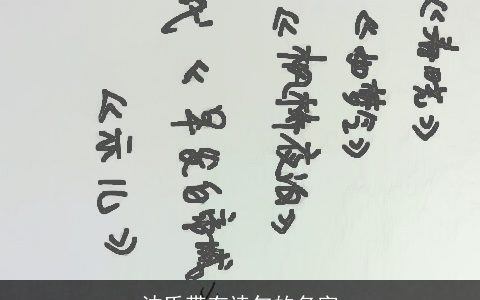 《春晓》
《如梦令》
《枫桥夜泊》
《早发白帝城》
《示儿》
带有诗句的名字